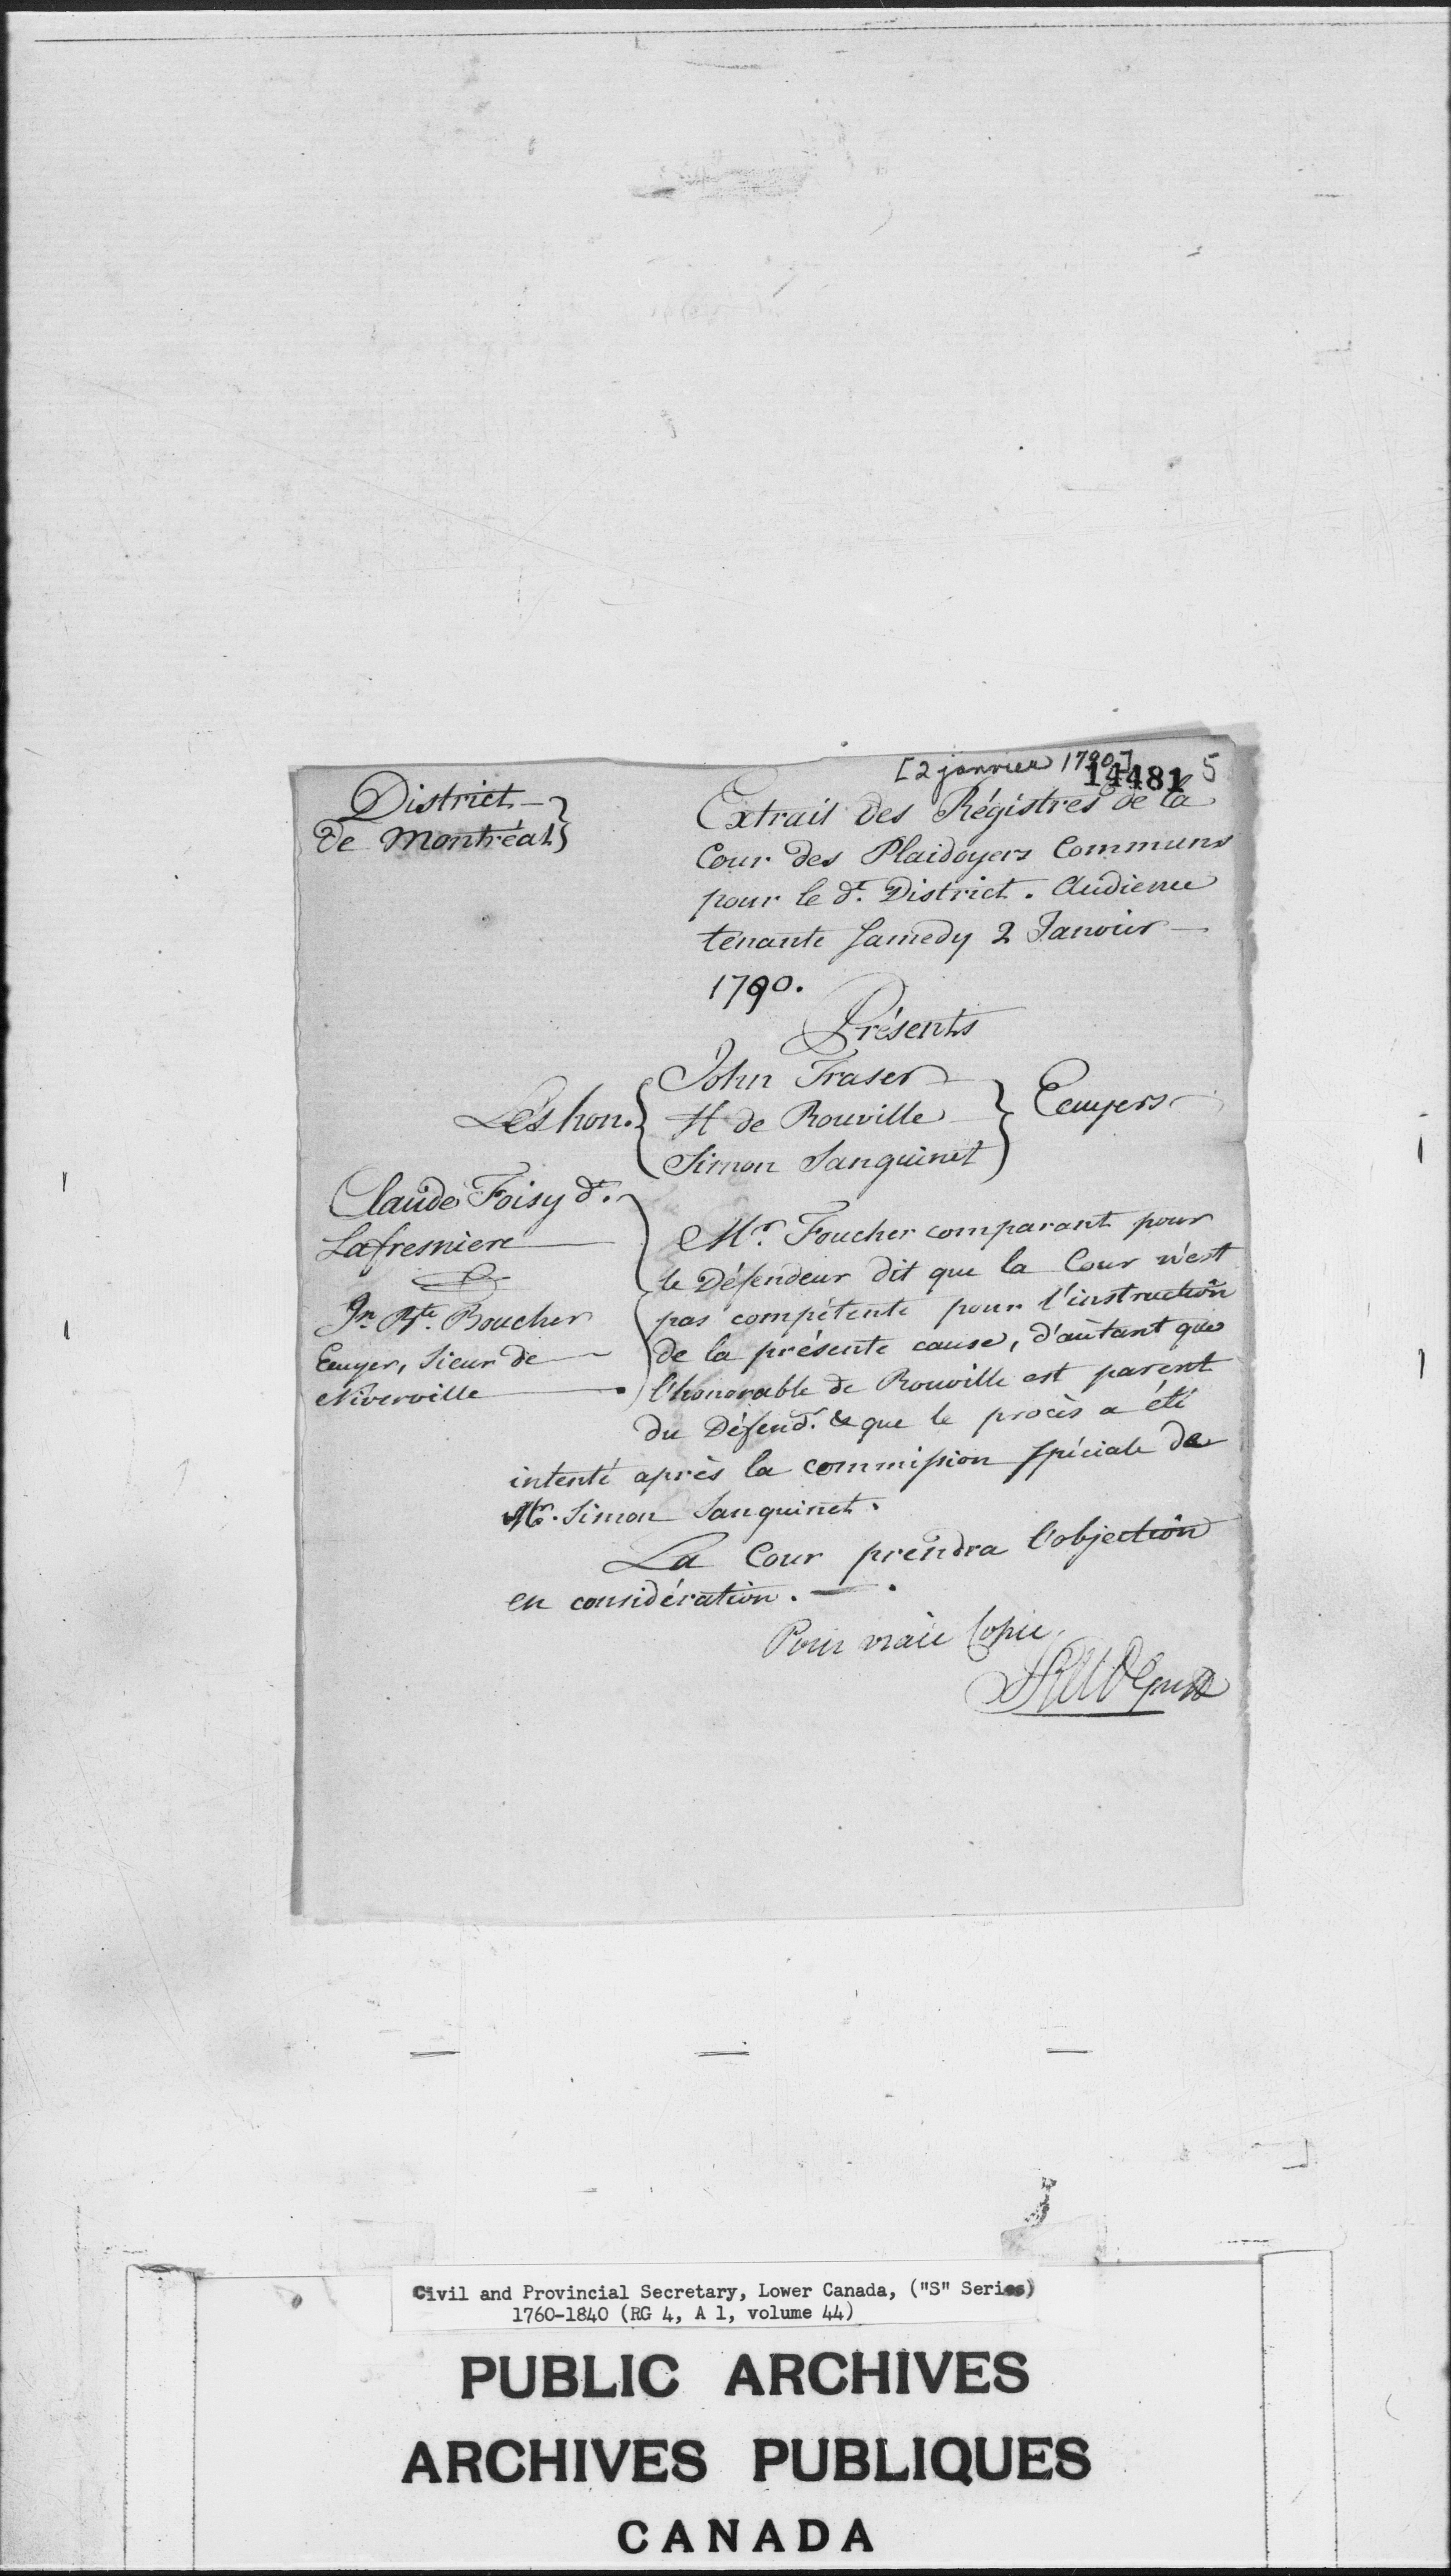 [2 janvier 1790]
14481 5
District
de Montréal
Extrait des Régistres de la
Cour des Plaidoyers Communs
pour le dt. District. Audience
tenante Samedy 2 Janvier
1790.
Présents
Les hon.
John Fraser
H de Rouville
Simon Sanguinet
Ecuyers
Claude Foisy dt.
Lafresniere
Jn. Bte. Boucher
Ecuyer, Sieur de
Niverville
Mr. Foucher comparant pour
le Défendeur dit que la Cour n'est
pas compétente pour l'instruction
de la présente cause, d'autant que
l'honorable de Rouville est parent
du Défendr. & que le procès a été
intenté après la commission spéciale de
Mr. Simon Sanguinet.
La Cour prendra l'objection
en considération.
Pour vraie Copie
Civil and Provincial Secretary, Lower Canada, ("S" Series)
1760-1840 (RG 4, A 1, volume 44)
PUBLIC ARCHIVES
ARCHIVES PUBLIQUES
CANADA